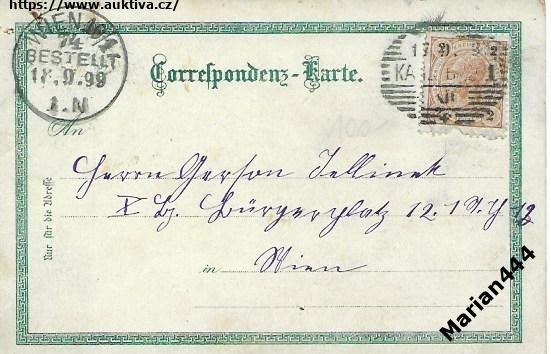 https://www.auktiva.cz/
WIEN 10/1
74
BESTELLT
9.99
1.N
Correspondenz-Karte.
An
Herrn Gerson Jellinek
X Bz. Bürgerplatz 12. 1. St. 12
in Wien
Nur für die Adresse
Marian444